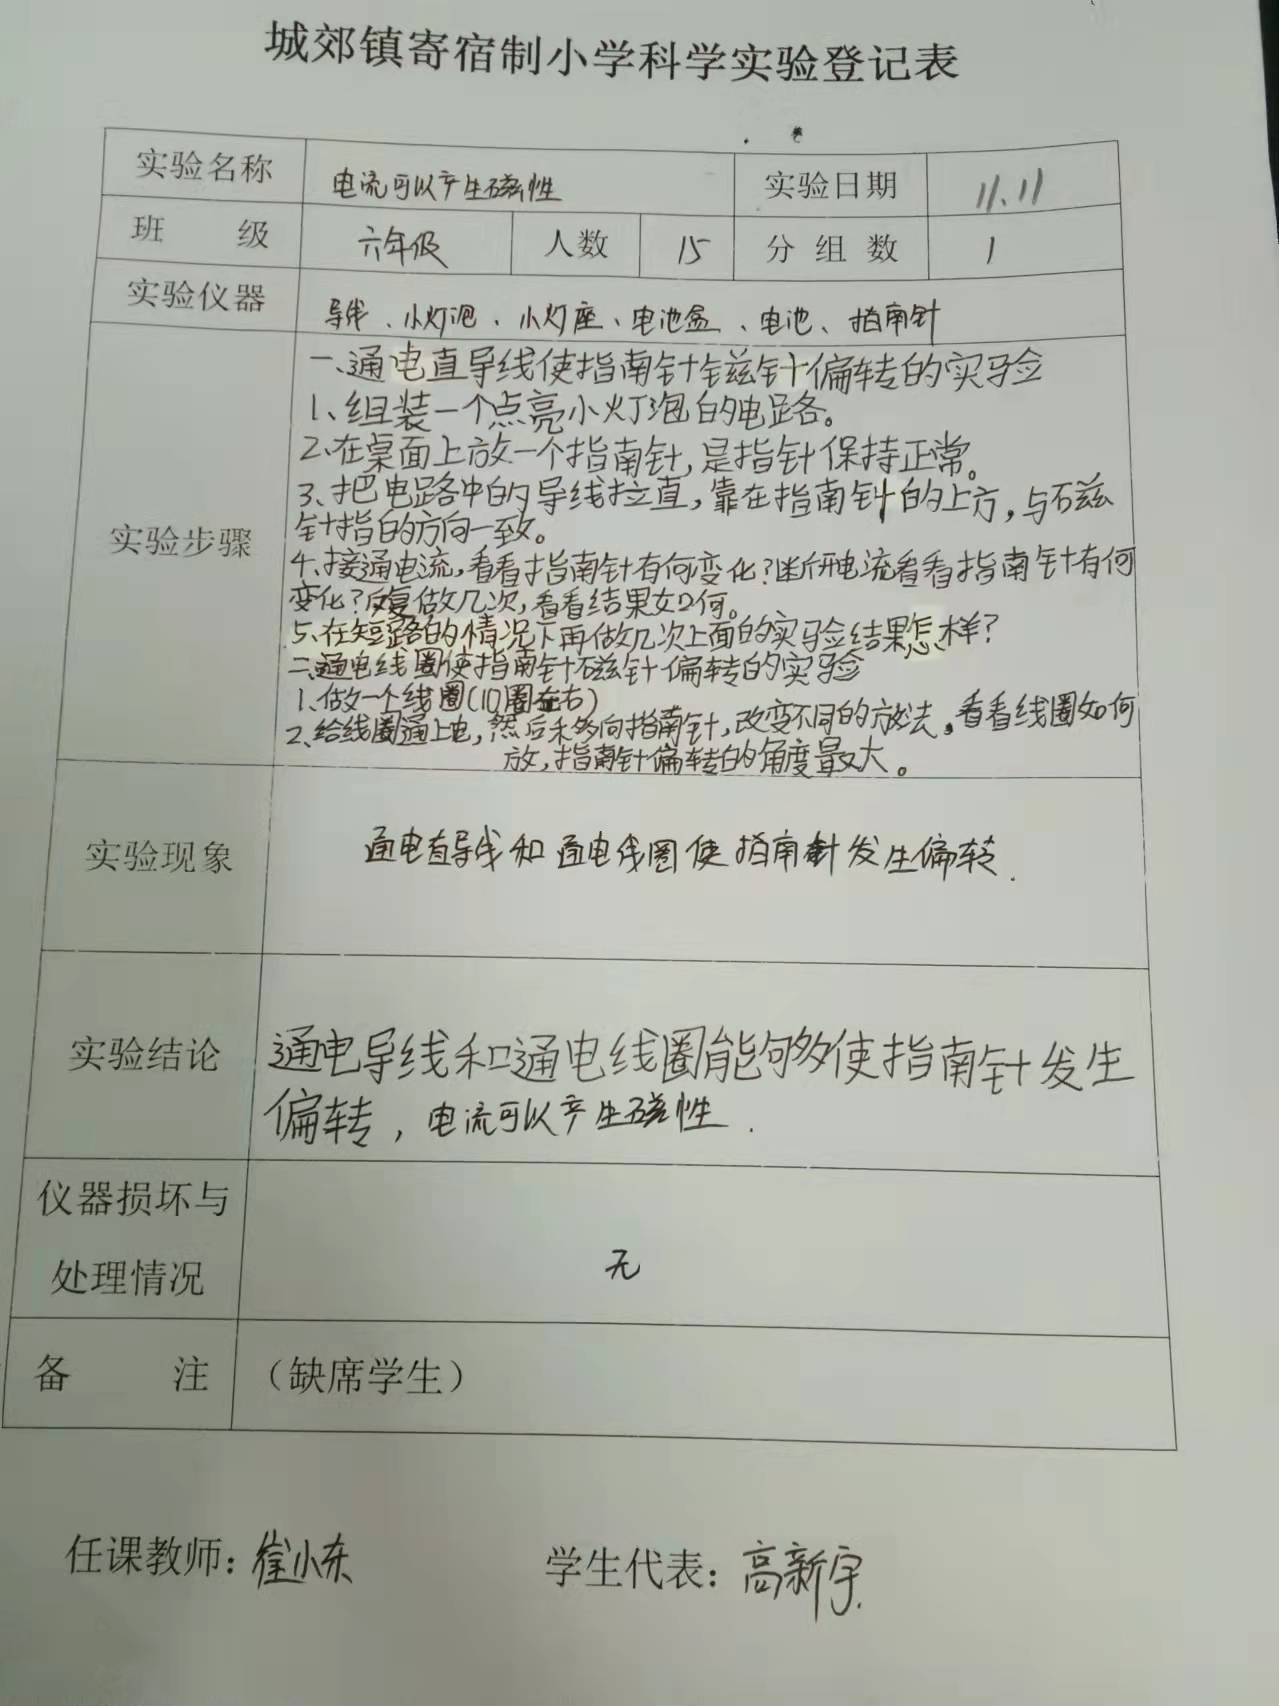 城郊镇寄宿制小学科学实验登记表
实验名称 电流可以产生磁性 实验日期 11.11
班 级 六年级 人数 15 分组数 1
实验仪器 导线、小灯泡、小灯座、电池盒、电池、指南针
实验步骤
一、通电直导线使指南针磁针偏转的实验
1、组装一个点亮小灯泡的电路。
2、在桌面上放一个指南针,是指针保持正常。
3、把电路中的导线拉直,靠在指南针的上方,与磁
针指的方向一致。
4、接通电流,看看指南针有何变化?断开电流看看指南针有何
变化?反复做几次,看看结果如何。
5、在短路的情况下再做几次上面的实验结果怎样?
二、通电线圈使指南针磁针偏转的实验
1、做一个线圈(10圈左右)
2、给线圈通上电,然后移向指南针,改变不同的方法,看看线圈如何
放,指南针偏转的角度最大。
实验现象 通电直导线和通电线圈使指南针发生偏转.
实验结论 通电导线和通电线圈能够使指南针发生
偏转,电流可以产生磁性.
仪器损坏与
处理情况 无
备 注 (缺席学生)
任课教师:崔小东 学生代表:高新宇.